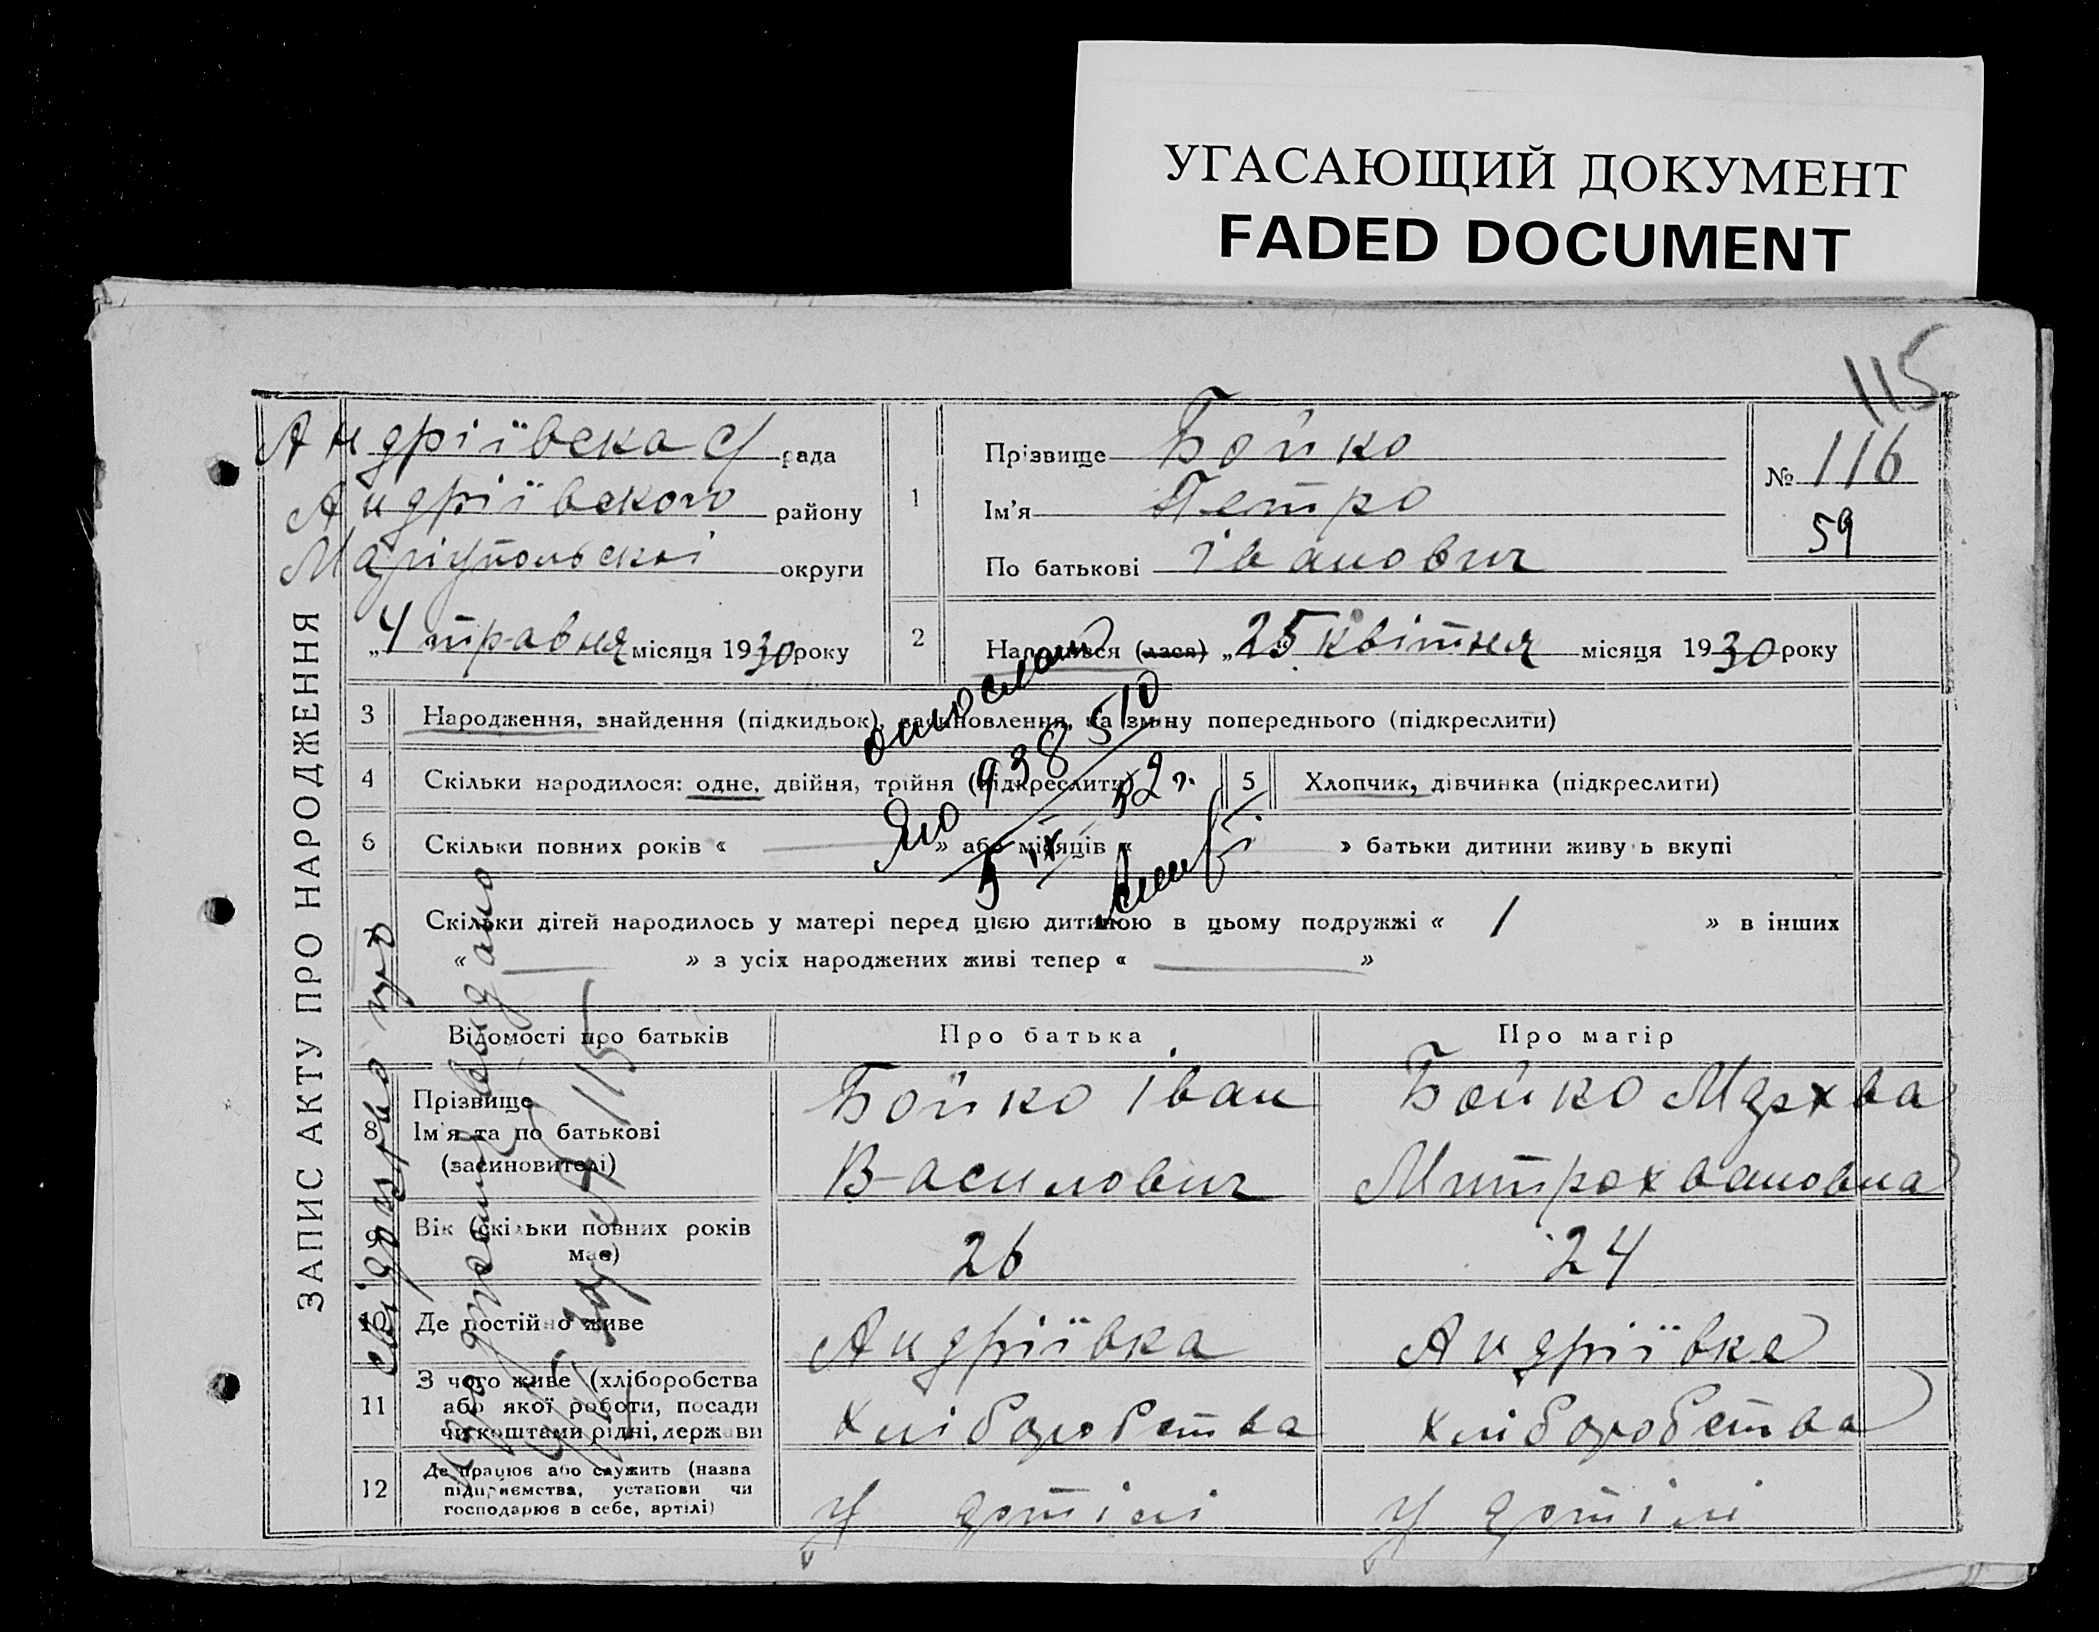 УГАСАЮЩИЙ ДОКУМЕНТ
FADED DOCUMENT
115
ЗАПИС АКТУ ПРО НАРОДЖЕННЯ
Андріївска с/рада
Андріївского району
Маріупольскоі округи
„4 травня місяця 1930 року
1
Прізвище Бойко
Ім'я Петро
По батькові Іванович
№ 116
59
2
Народився (лася) „25 квітня місяця 1930 року
3 Народження, знайдення (підкидьок), засиновлення, на зміну попереднього (підкреслити)
4 Скільки народилося: одне, двійня, трійня (підкреслити)
5 Хлопчик, дівчинка (підкреслити)
6 Скільки повних років « » або місяців « » батьки дитини живуть вкупі
7 Скільки дітей народилось у матері перед цією дитиною в цьому подружжі « 1 » в інших
« » з усіх народжених живі тепер « »
ЯЮ 938510
5 IX 52 г.
свідоцтво про
народження видано
Відомості про батьків Про батька Про матір
8 Прізвище
Ім'я та по батькові
(засиновителі)
Бойко Іван
Василович
Бойко Мархва
Митрохвановна
9 Вік (скільки повних років
має)
26 24
10 Де постійно живе Андріївка Андріївка
11 З чого живе (хліборобства
або якої роботи, посади
чи коштами рідні, держави
хліборобства хліборобства
12 Де працює або служить (назва
підприємства, установи чи
господарює в себе, артілі)
У артілі У артілі